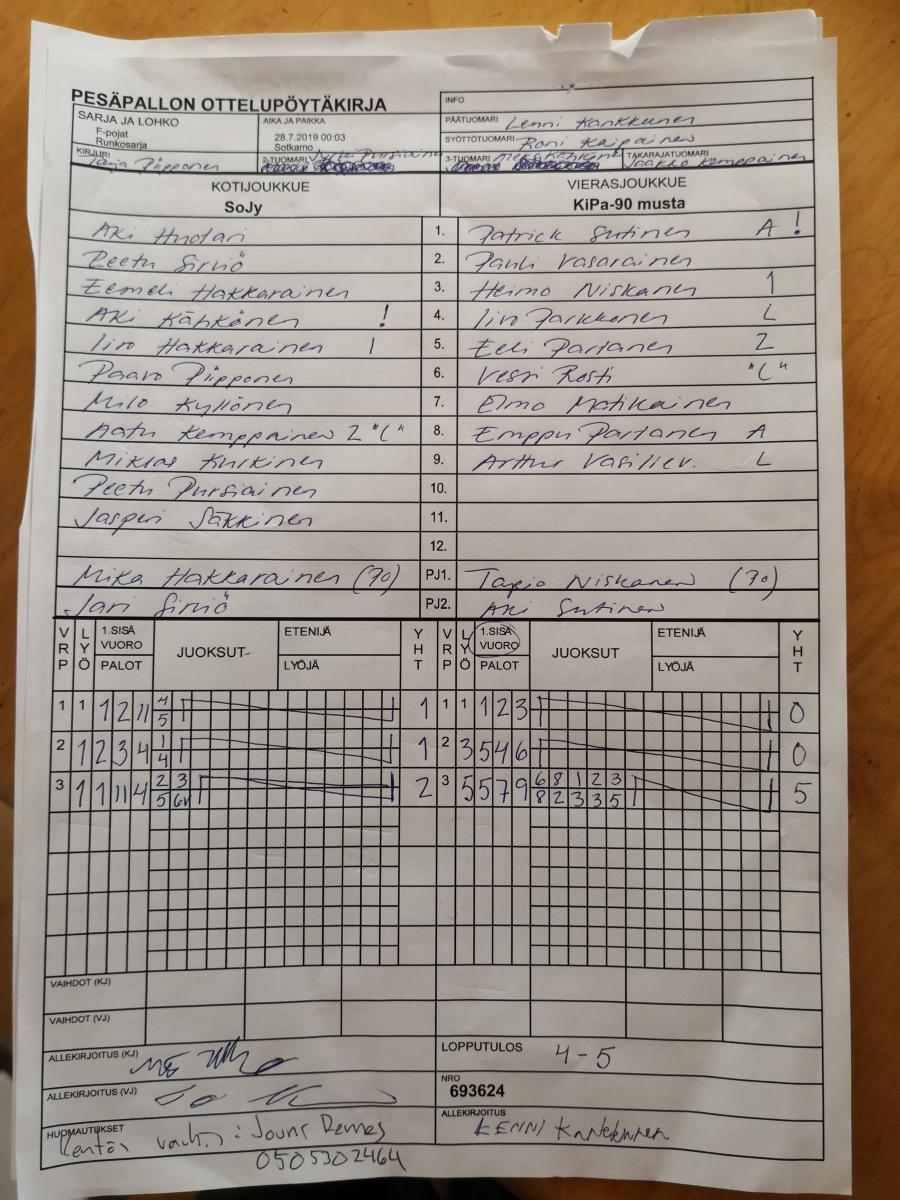 PESÄPALLON OTTELUPÖYTÄKIRJA
INFO
SARJA JA LOHKO
F-pojat
Runkosarja
AIKA JA PAIKKA
28.7.2019 00:03
Sotkamo
PÄÄTUOMARI Lenni Kankkunen
SYÖTTÖTUOMARI Roni Kaipainen
KIRJURI Tarja Piipponen
2-TUOMARI Pursiainen
3-TUOMARI
TAKARAJATUOMARI Jaakko Kemppainen
KOTIJOUKKUE
SoJy
VIERASJOUKKUE
KiPa-90 musta
Aki Huotari 1. Patrick Sutinen A !
Peetu Sirviö 2. Pauli Vasarainen
Eemeli Hakkarainen 3. Heimo Niskanen 1
Aki Kähkönen ! 4. Iiro Parkkonen L
Iiro Hakkarainen 1 5. Eeli Partanen 2
Paavo Piipponen 6. Vessi Rosti "C"
Milo Kyllönen 7. Elmo Matikainen
Aatu Kemppainen 2 "C" 8. Emppu Partanen A
Miklas Kurkinen 9. Arthur Vasiliev. L
Peetu Pursiainen 10.
Jasperi Säkkinen 11.
12.
Mika Hakkarainen (70) PJ1. Tapio Niskanen (70)
Jari Sirviö PJ2. Aki Sutinen
VRP LYÖ 1.SISÄ VUORO PALOT JUOKSUT ETENIJÄ LYÖJÄ YHT VRP LYÖ 1.SISÄ VUORO PALOT JUOKSUT ETENIJÄ LYÖJÄ YHT
1 1 1 2 11 4 1 1 1 1 2 3 0
5
2 1 2 3 4 1 1 2 3 5 4 6 0
4
3 1 1 11 4 2 3 2 3 5 5 7 9 6 8 1 2 3 5
5 6v 8 2 3 3 5
VAIHDOT (KJ)
VAIHDOT (VJ)
ALLEKIRJOITUS (KJ)
LOPPUTULOS 4-5
ALLEKIRJOITUS (VJ)
NRO
693624
HUOMAUTUKSET
Kentän vaiht.: Jouni Remes
0505302464
ALLEKIRJOITUS
LENNI KANKKUNEN